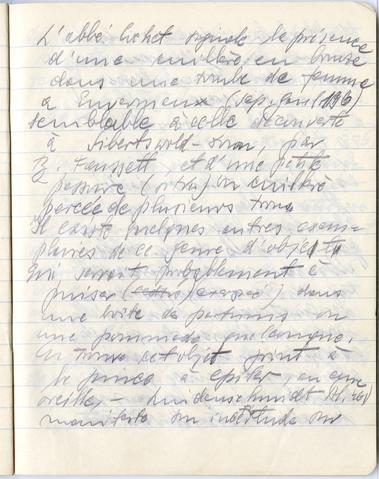 L'abbé Cochet signale la présence
d'une cuillère en bronze
dans une tombe de femme
à Envermeux (Sep. Gaul. 196)
semblable à celle découverte
à Sibertswold-Down, par
B. Faussett, et d'une petite
passoire ou cuillère
percée de plusieurs trous
Il existe quelques autres exem-
plaires de ce genre d'objets
qui servait probablement à
puiser dans
une boite de parfums ou
une pommade quelconque.
On trouve cet objet joint à
la pince à épiler, ou cure
oreilles. - Lindenschmidt
manifeste son incertitude sur